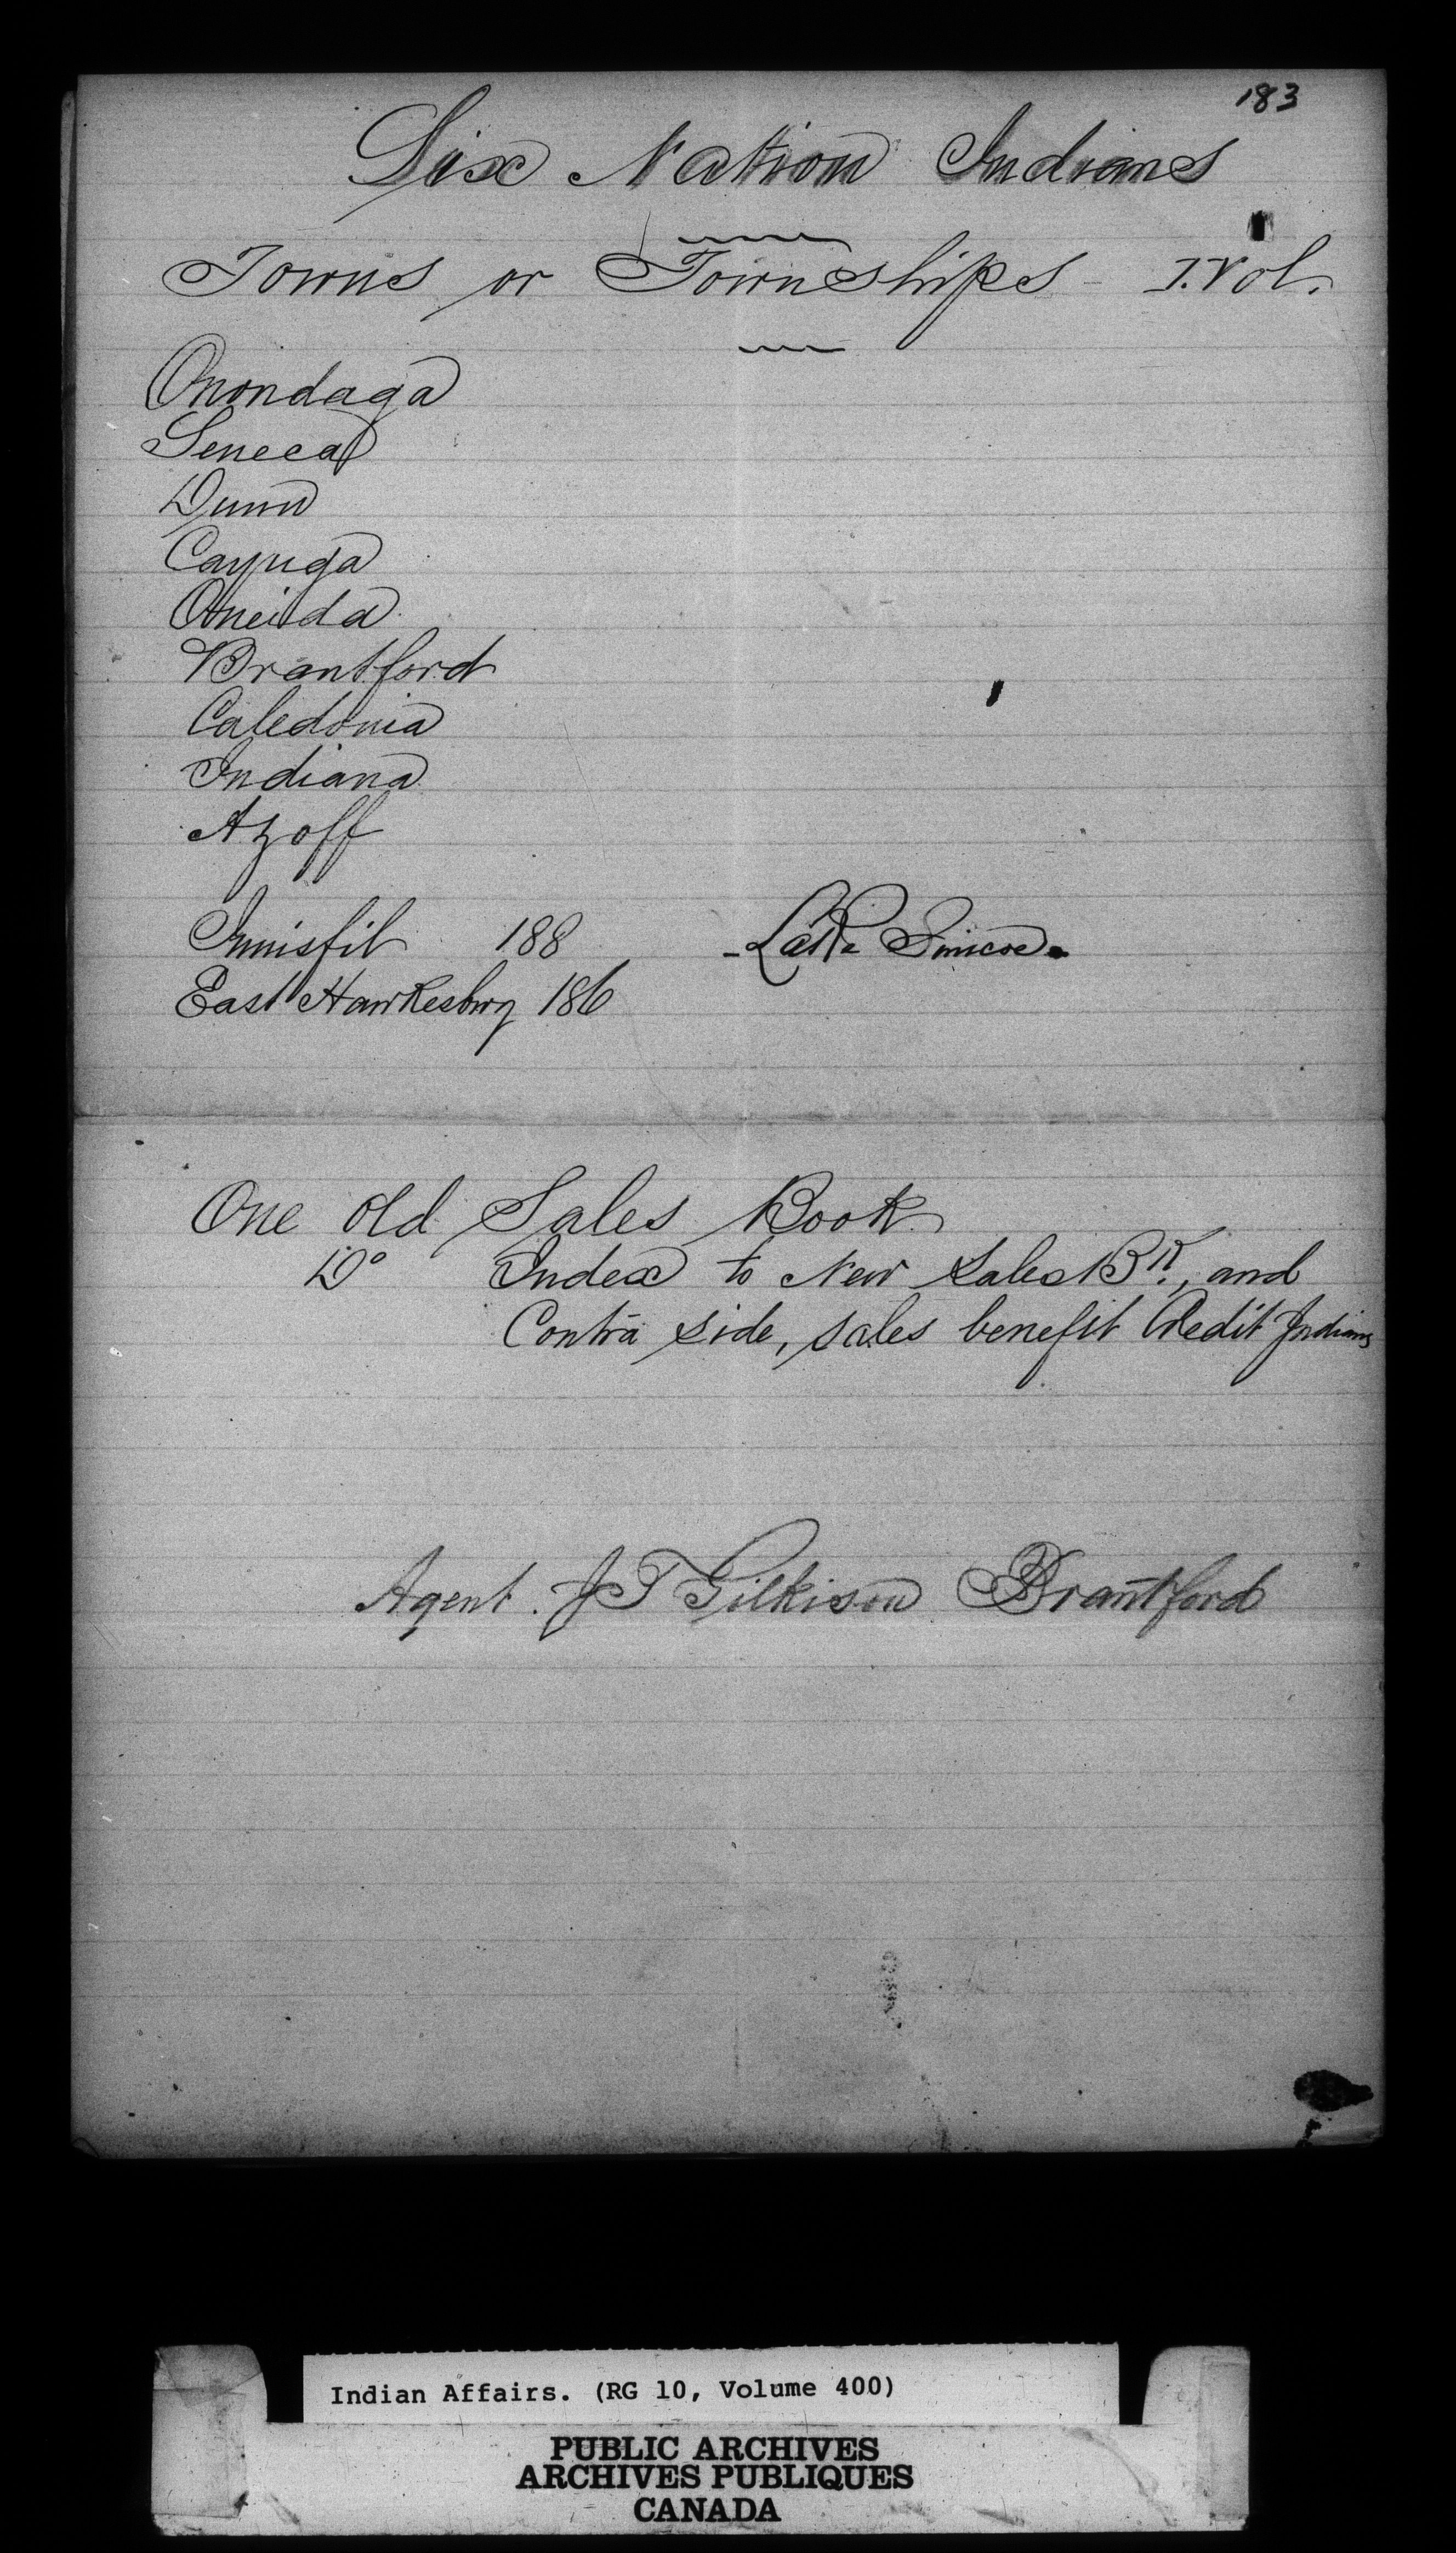 183
Six Nation Indians
Towns or Townships - 1. Vol.
Onondaga
Seneca
Dunn
Cayuga
Oneida
Brantford
Caledonia
Indiana
Azoff
Innisfil 188 - Lake Simcoe -
East Hawkesbury 186
One old Sales Book
Do Index to New Sales Bk., and
Contra side, sales benefit Credit Indians
Agent. J T Gilkison Brantford
Indian Affairs. (RG 10, Volume 400)
PUBLIC ARCHIVES
ARCHIVES PUBLIQUES
CANADA